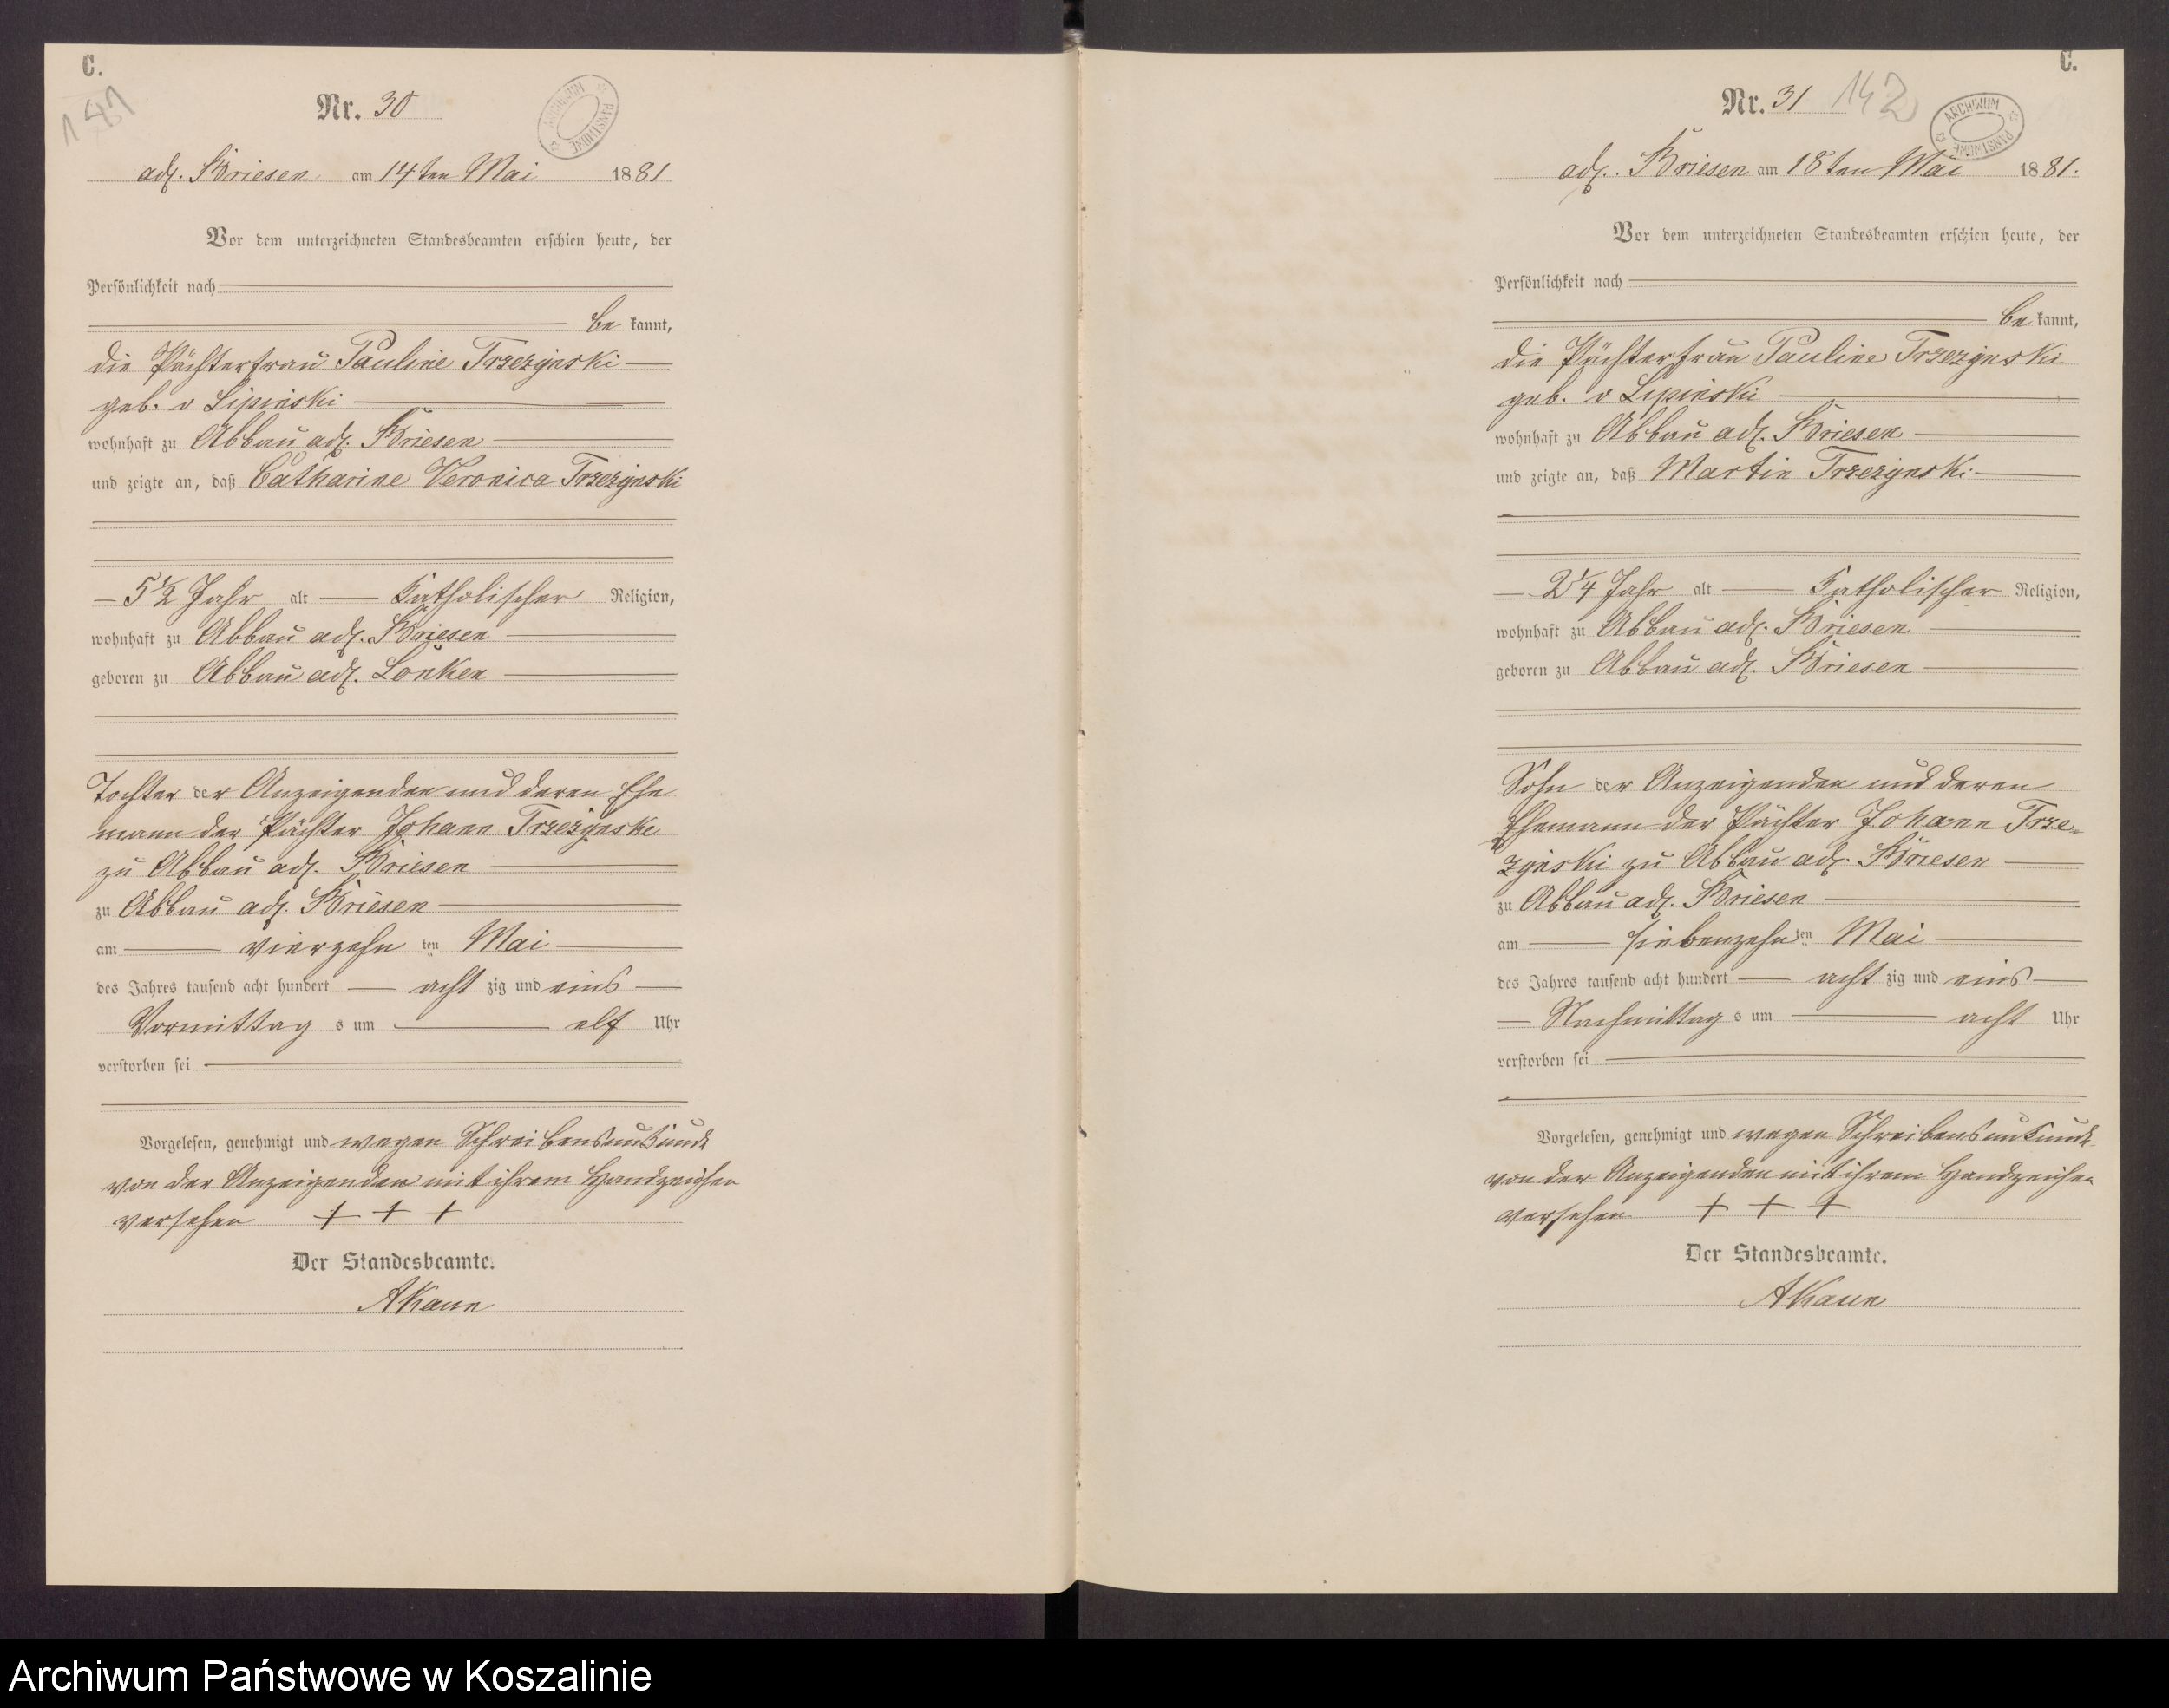 C.
141
Nr. 30
ARCHIWUM PAŃSTWOWE
adl. Briesen am 14ten Mai 1881
Vor dem unterzeichneten Standesbeamten erschien heute, der
Persönlichkeit nach
be kannt,
die Pächterfrau Pauline Trzezynski
geb. v Lipinski
wohnhaft zu Abbau adl. Briesen
und zeigte an, daß Catharine Veronica Trzezynski
5 1/2 Jahr alt Katholischer Religion,
wohnhaft zu Abbau adl. Briesen
geboren zu Abbau adl. Lonken
Tochter der Anzeigenden und deren Ehe
mann der Pächter Johann Trzezynske
zu Abbau adl. Briesen
zu Abbau adl. Briesen
am vierzehn ten Mai
des Jahres tausend acht hundert acht zig und eins
Vormittag s um elf Uhr
verstorben sei
Vorgelesen, genehmigt und wegen Schreibensunkunde
von der Anzeigenden mit ihrem Handzeichen
versehen + + +
Der Standesbeamte.
AKaun
C.
Nr. 31 142
ARCHIWUM PAŃSTWOWE
adl. Briesen am 18ten Mai 1881.
Vor dem unterzeichneten Standesbeamten erschien heute, der
Persönlichkeit nach
be kannt,
die Pächterfrau Pauline Trzezynski
geb. v Lipinski
wohnhaft zu Abbau adl. Briesen
und zeigte an, daß Martin Trzezynski
2 1/4 Jahr alt Katholischer Religion,
wohnhaft zu Abbau adl. Briesen
geboren zu Abbau adl. Briesen
Sohn der Anzeigenden und deren
Ehemann der Pächter Johann Trze-
zynski zu Abbau adl. Briesen
zu Abbau adl. Briesen
am siebenzehn ten Mai
des Jahres tausend acht hundert acht zig und eins
Nachmittag s um acht Uhr
verstorben sei
Vorgelesen, genehmigt und wegen Schreibensunkunde
von der Anzeigenden mit ihrem Handzeichen
versehen + + +
Der Standesbeamte.
AKaun
Archiwum Państwowe w Koszalinie